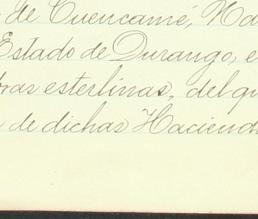 de Cuencamé, Ma
Estado de Durango, e
bras esterlinas, del qu
de dichas Haciend